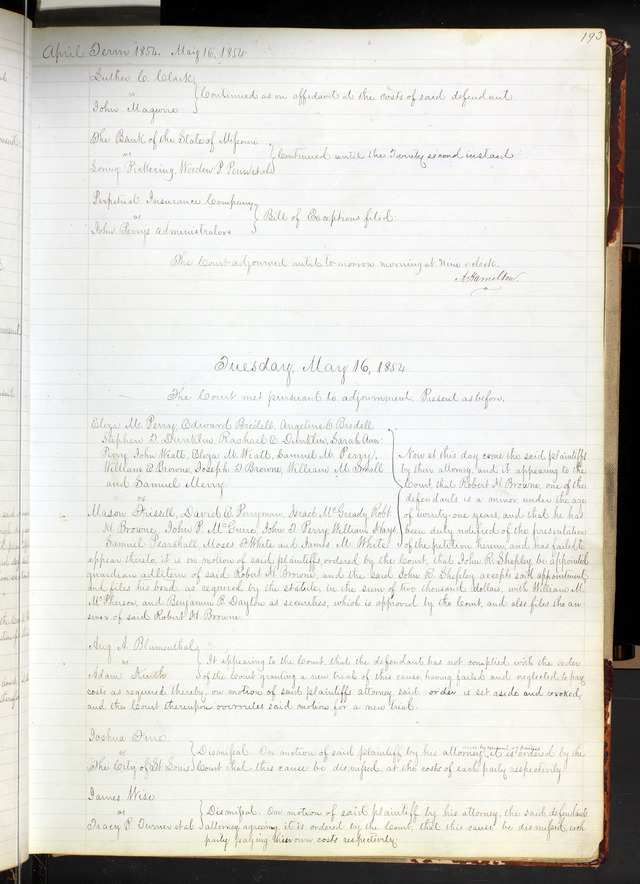 193
April Term 1854. May 16, 1854
Luther C. Clark
vs
John Maguire
Continued as on affidavit at the costs of said defendant
The Bank of the State of Missouri
vs
Pickering, Worden P.
Continued until the Twenty second instant
Perpetual Insurance Company
vs
John Perrys administrators
Bill of Exceptions filed
The Court adjourned until to morrow morning at Nine o'clock.
A. Hamilton
Tuesday, May 16, 1854
The Court met pursuant to adjournment. Present as before.
Eliza M. Perry, Edward Bredell, Angeline C. Bredell
Stephen T. Dunklin, Rachael E. Dunklin, Sarah Ann
Perry, John Wiatt, Eliza M. Wiatt, Samuel M. Perry,
William C. Browne, Joseph T. Browne, William M. Small
and Samuel Merry.
vs
Mason Frissell, David E. Perryman, Israel McGready, Robt
H. Browne, John P. McGuire, John T. Perry, William Hays,
Samuel Pearshall, Moses White and James M. White
Now at this day come the said plaintiffs
by their attorney, and it appearing to the
Court that Robert H. Browne, one of the
defendants is a minor under the age
of twenty-one years, and that he has
been duly notified of the presentation
of the petition herein, and has failed to
appear thereto, it is on motion of said plaintiffs, ordered by the Court, that John R. Shepley be appointed
guardian ad litem of said Robert H. Browne, and the said John R. Shepley accepts said appointment
and files his bond as required by the statute, in the sum of two thousand dollars, with William M.
McPherson, and Benjamin B. Dayton as securities, which is approved by the Court, and also files the an-
swer of said Robert H. Browne
Aug A. Blumenthal
vs
Adam
It appearing to the Court, that the defendant has not complied with the order
of the Court granting a new trial of this cause, having failed and neglected to pay
costs as required thereby, on motion of said plaintiffs attorney said order is set aside and revoked,
and the Court thereupon overrules said motion for a new trial.
Joshua
vs
The City of St Louis
Dismissal. On motion of said plaintiff by his attorney, and by consent of parties it is ordered by the
Court that this cause be dismissed, at the costs of each party respectively
James Wise
vs
Tracy P. Turner et al
Dismissal. On motion of said plaintiff by his attorney, the said defendants
attorney agreeing, it is ordered by the Court, that this cause be dismissed, each
party paying their own costs respectively.